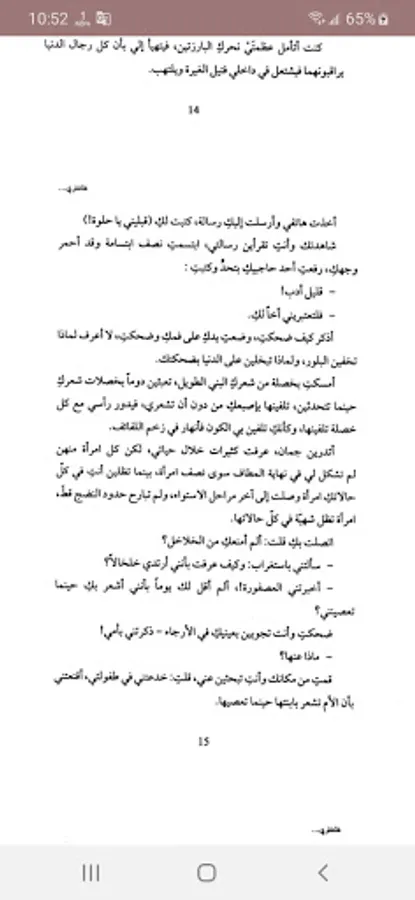 10:52
65%
كنت أتأمل عظمتَيْ نحركِ البارزتين، فيتهيأ إلي بأن كل رجال الدنيا
يراقبونهما فيشتعل في داخلي فتيل الغيرة ويلتهب.
14
أخذت هاتفي وأرسلت إليكِ رسالة، كتبت لكِ (قبليني يا حلوة!)
شاهدتك وأنتِ تقرأين رسالتي، ابتسمتِ نصف ابتسامة وقد أحمر
وجهكِ، رفعتِ أحد حاجبيكِ بتحدٍّ وكتبتِ :
– قليل أدب!
– فلتعتبريني أخاً لكِ.
أذكر كيف ضحكتِ، وضعتِ يدكِ على فمكِ وضحكتِ، لا أعرف لماذا
تخفين البلور، ولماذا تبخلين على الدنيا بضحكتك.
أمسكتِ بخصلة من شعركِ البني الطويل، تعبثين دوماً بخصلات شعركِ
حينما تتحدثين، تلفينها بإصبعكِ من دون أن تشعري، فيدور رأسي مع كل
خصلة تلفينها، وكأنكِ تلفين بي الكون فأنهار في زخم اللفائف.
أتدرين جمان، عرفت كثيرات خلال حياتي، لكن كل امرأة منهن
لم تشكل لي في نهاية المطاف سوى نصف امرأة، بينما تظلين أنتِ في كلّ
حالاتكِ امرأة وصلت إلى آخر مراحل الاستواء، ولم تبارح حدود النضج قط،
امرأة تظل شهيّة في كلّ حالاتها.
اتصلت بكِ قلت: ألم أمنعكِ من الخلاخل؟
– سألتني باستغراب: وكيف عرفت بأنني أرتدي خلخالاً؟
– أخبرتني العصفورة!، ألم أقل لك يوماً بأنني أشعر بكِ حينما
تعصيني؟
ضحكتِ وأنت تجوبين بعينيكِ في الأرجاء – ذكرتني بأمي!
– ماذا عنها؟
قمتِ من مكانك وأنتِ تبحثين عني، قلتِ: خدعتني في طفولتي، أقنعتني
بأن الأم تشعر بابنتها حينما تعصيها.
15